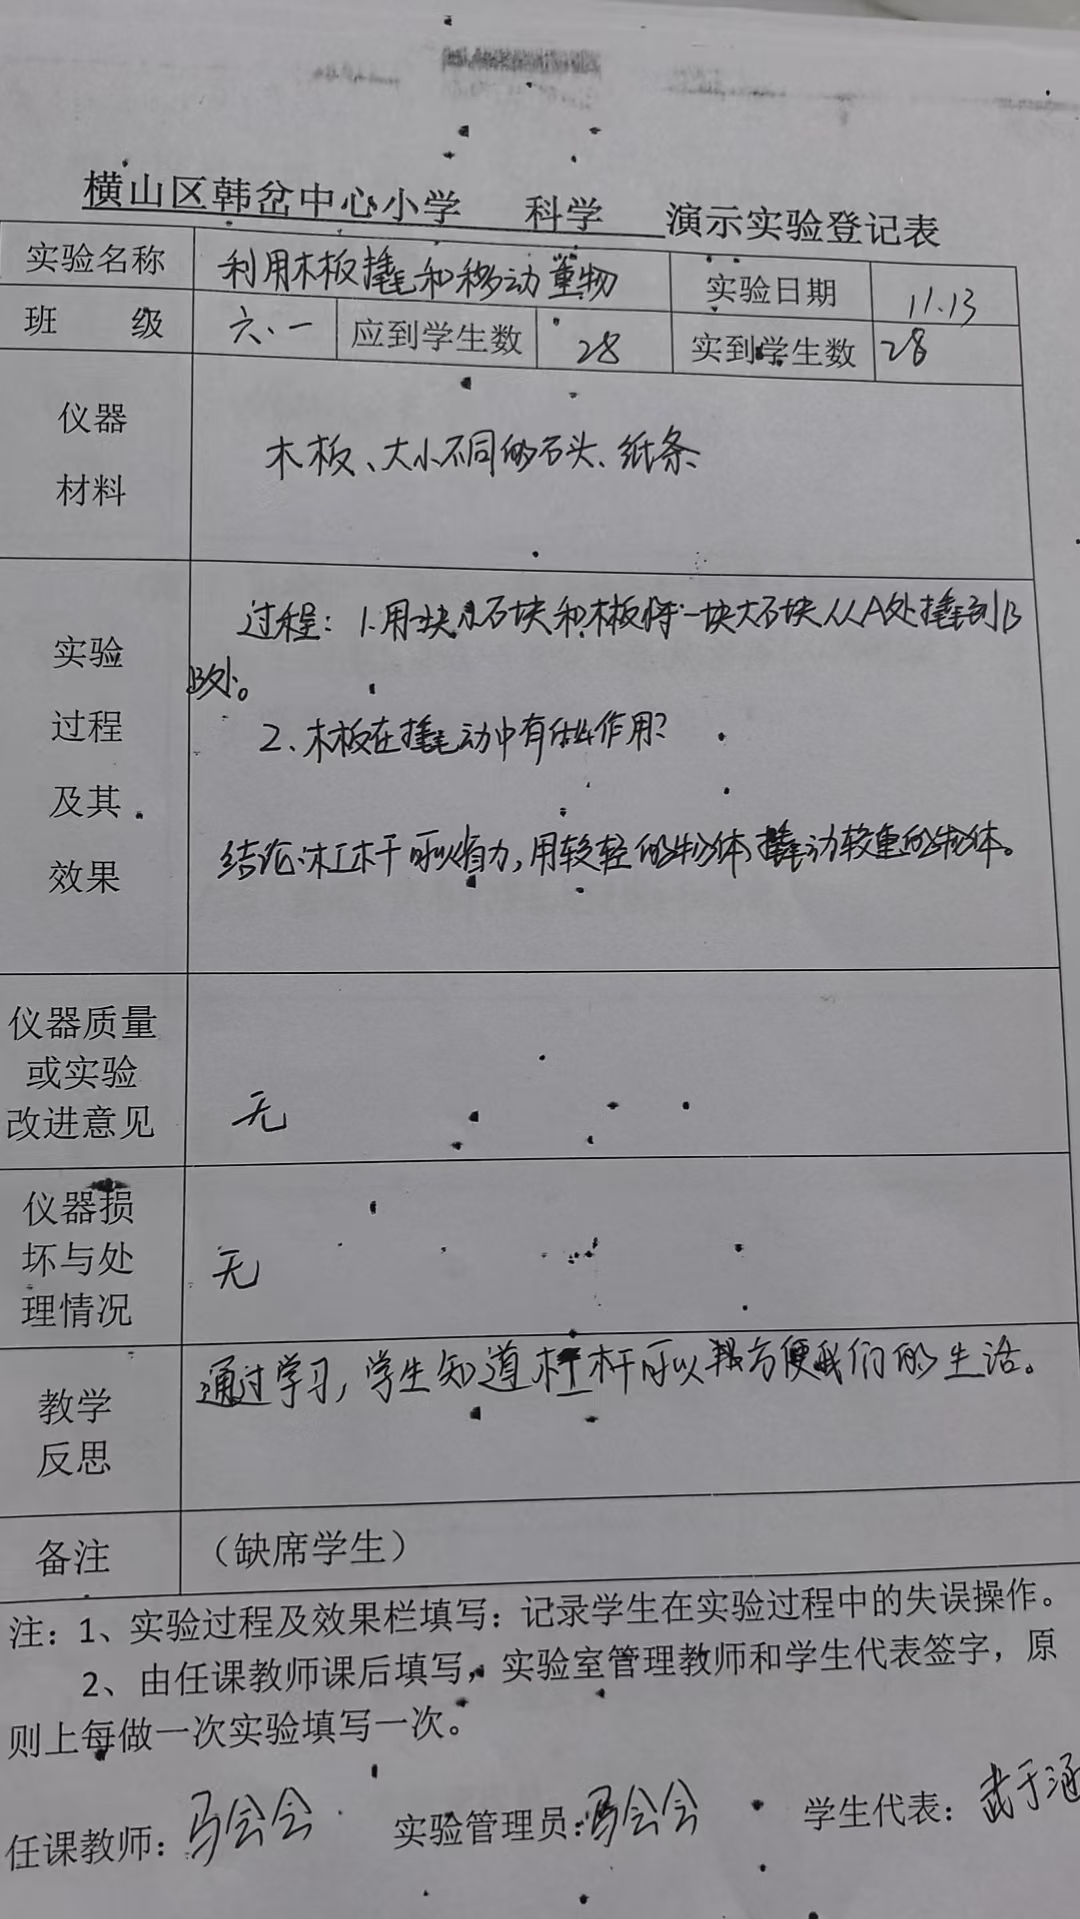 横山区韩岔中心小学 科学 演示实验登记表
实验名称 利用木板撬和移动重物 实验日期 11.13
班 级 六、一 应到学生数 28 实到学生数 28
仪器
材料
木板、大小不同的石头、纸条
实验
过程
及其
效果
过程：1.用块小石块和木板将一块大石块从A处撬到B
B处。
2、木板在撬动中有什么作用？
结论：杠杆可以省力，用较轻的物体撬动较重的物体。
仪器质量
或实验
改进意见
无
仪器损
坏与处
理情况
无
教学
反思
通过学习，学生知道杠杆可以方便我们的生活。
备注 （缺席学生）
注：1、实验过程及效果栏填写：记录学生在实验过程中的失误操作。
2、由任课教师课后填写，实验室管理教师和学生代表签字，原
则上每做一次实验填写一次。
任课教师：马会会 实验管理员：马会会 学生代表：武于涵